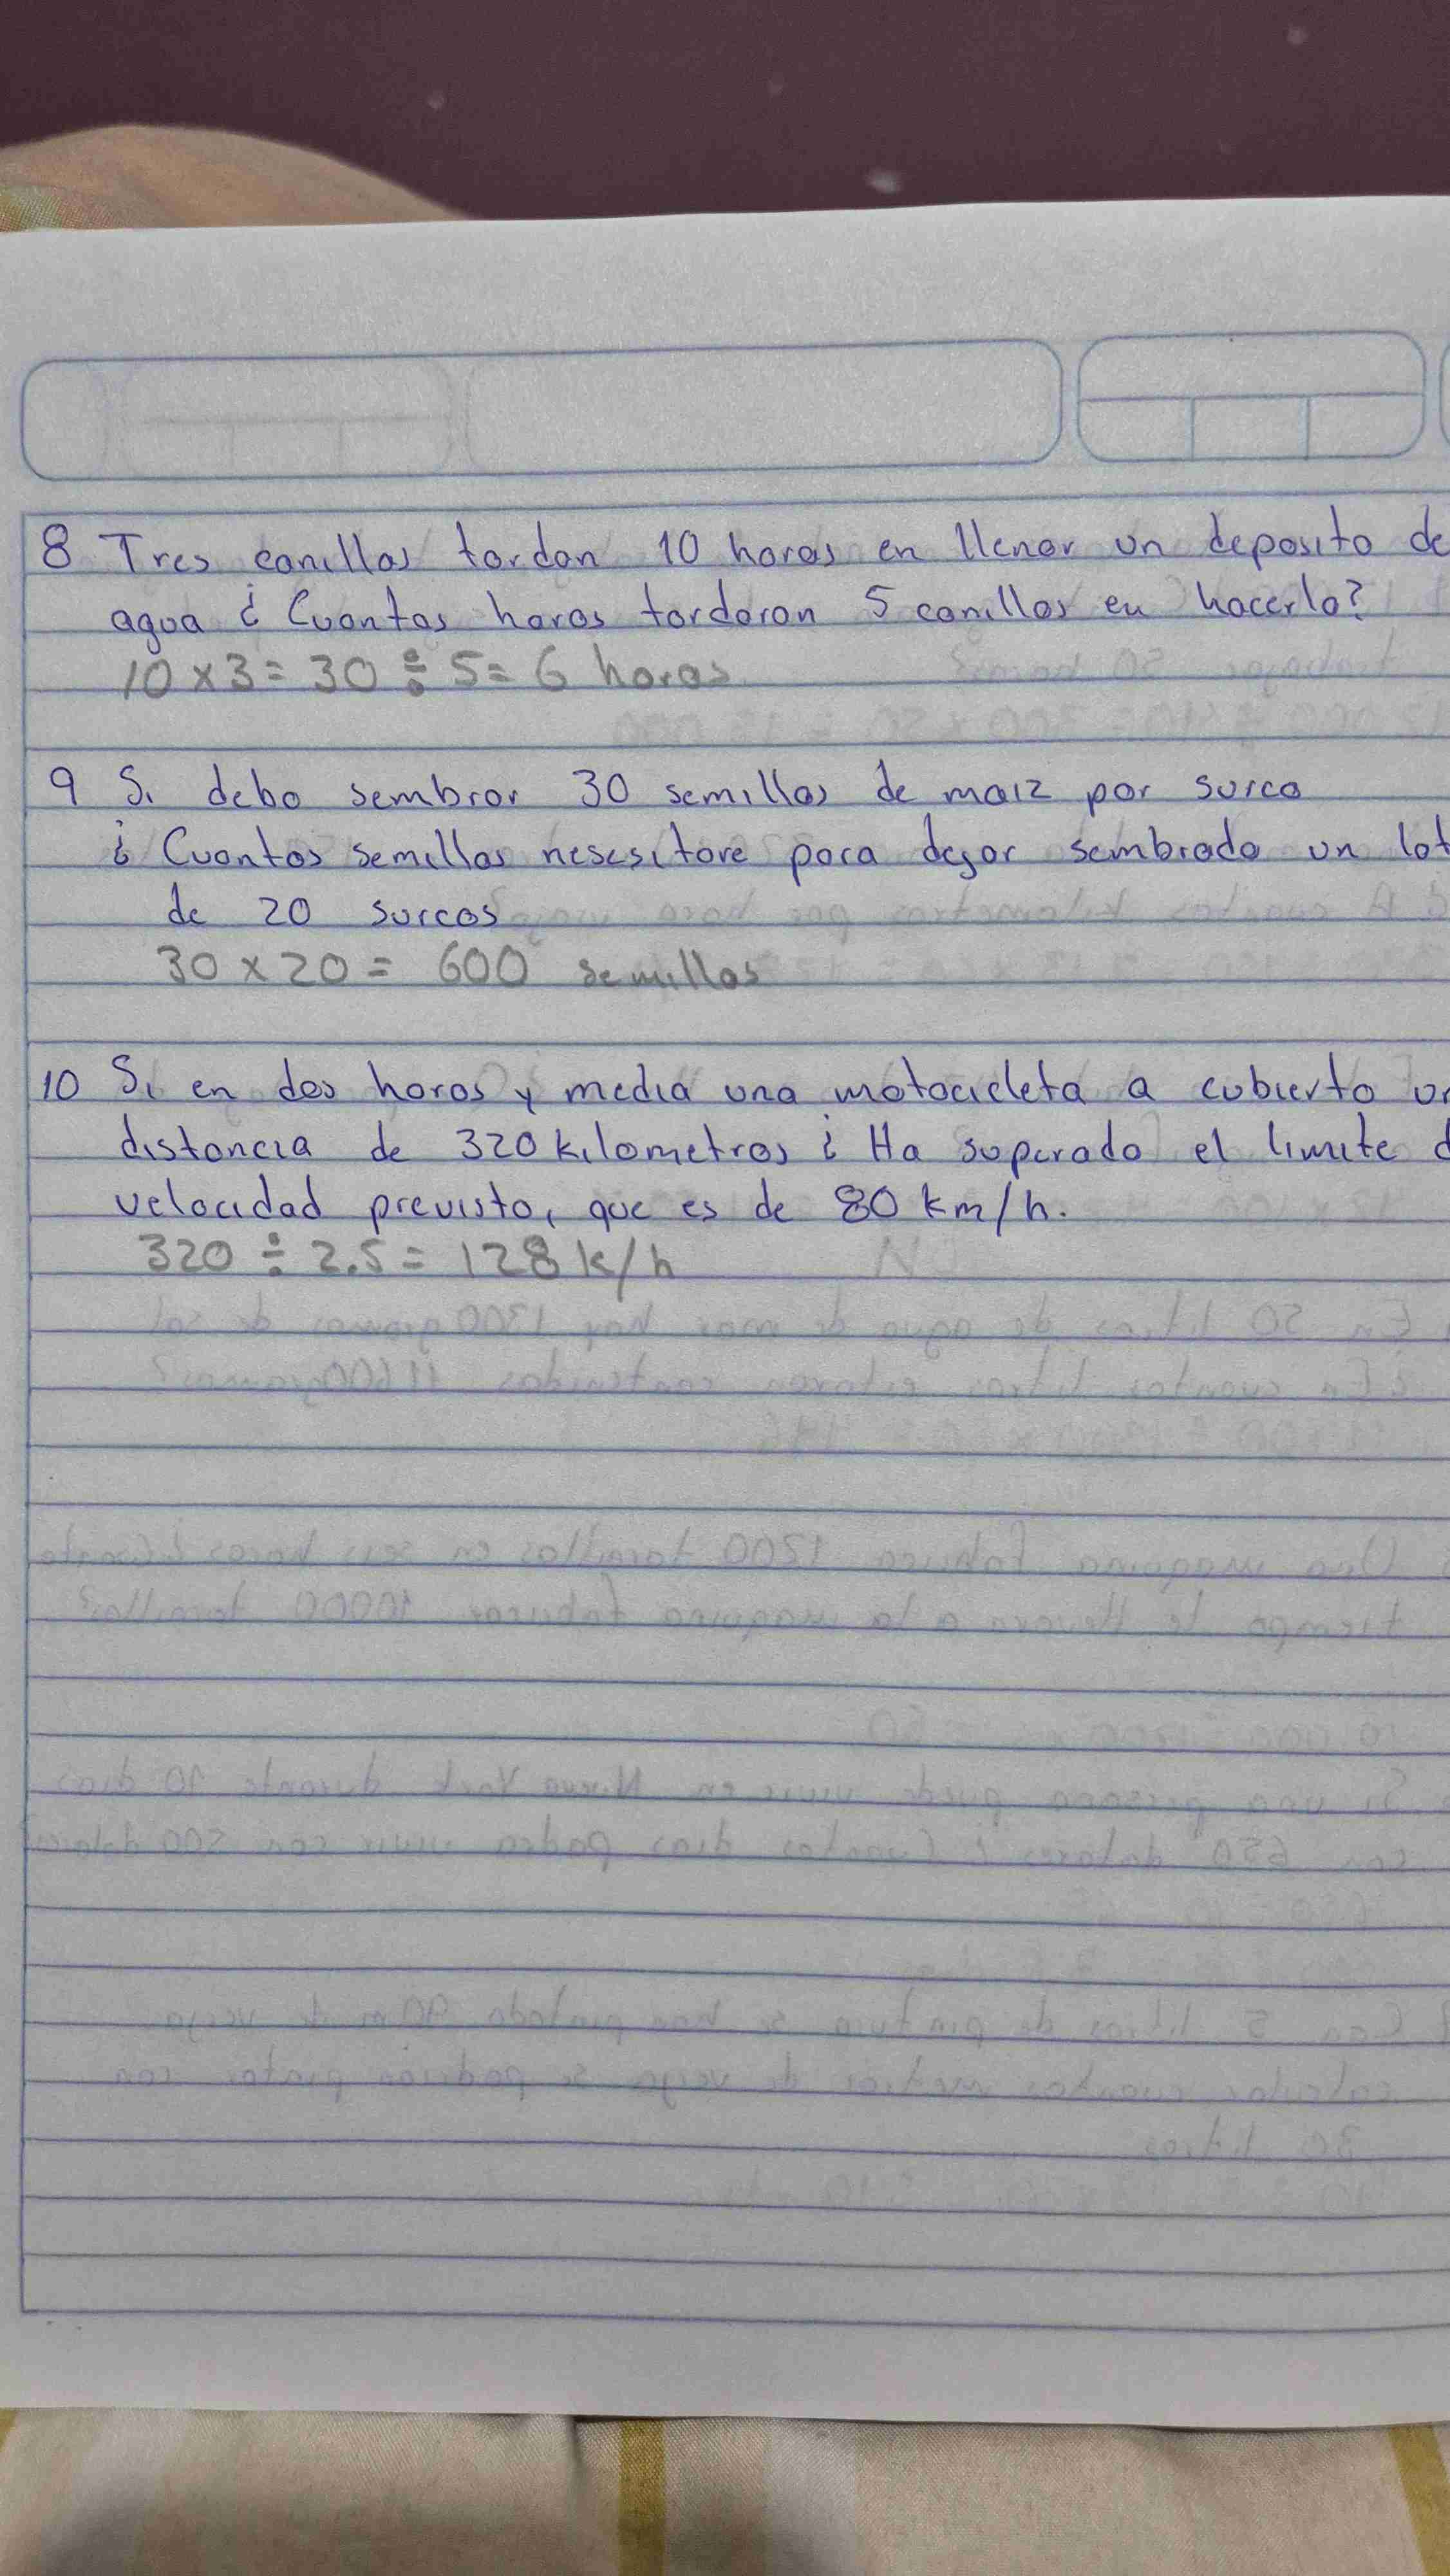 8 Tres canillas tardan 10 horas en llenar un deposito de
agua ¿ Cuantas horas tardaran 5 canillas en hacerlo?
10 x 3 = 30 ÷ 5 = 6 horas
9 Si debo sembrar 30 semillas de maiz por surco
¿ Cuantas semillas nesesitare para dejar sembrado un lot
de 20 surcos
30 x 20 = 600 semillas
10 Si en dos horas y media una motocicleta a cubierto un
distancia de 320 kilometros ¿ Ha superado el limite d
velocidad previsto, que es de 80 km/h.
320 ÷ 2.5 = 128 k/h